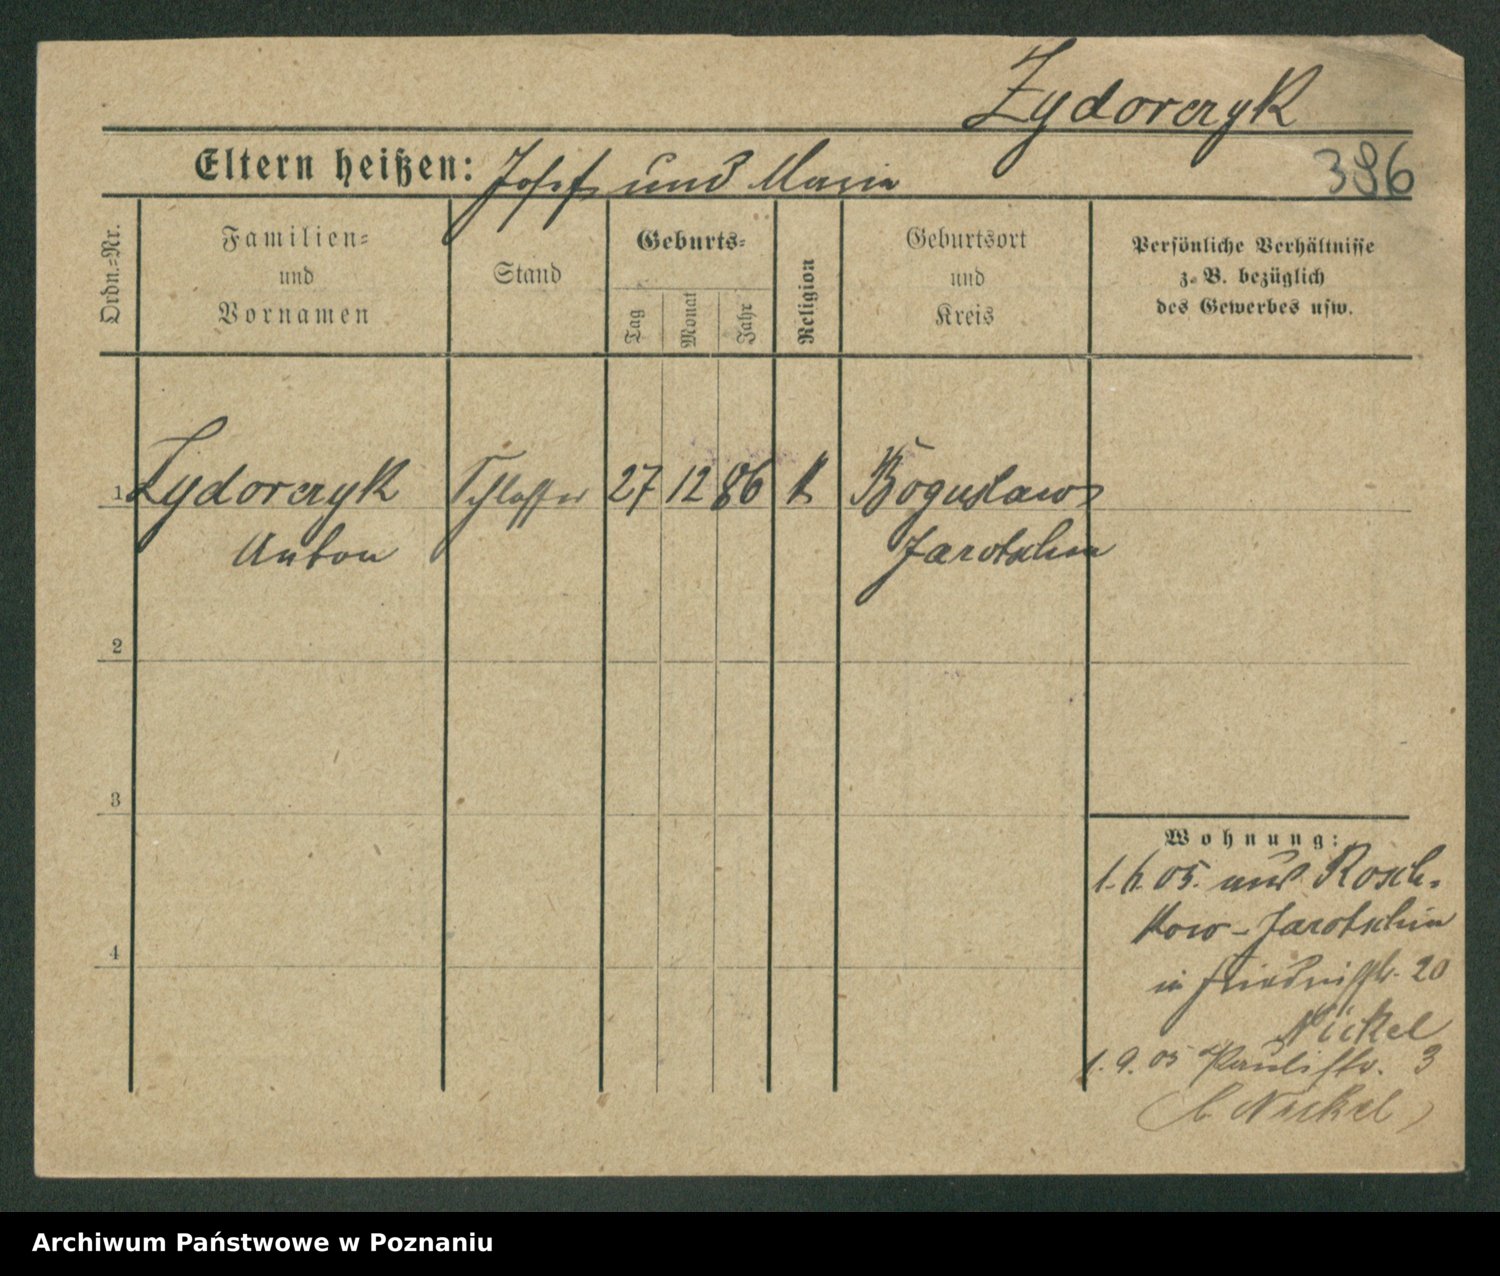 Zydorczyk
Eltern heißen: Josef und Maria
386
Ordn.-Nr.
Familien-
und
Vornamen
Stand
Geburts-
Tag
Monat
Jahr
Religion
Geburtsort
und
Kreis
Persönliche Verhältnisse
z. B. bezüglich
des Gewerbes usw.
1 Zydorczyk Schlosser 27 12 86 K Boguslaw
Anton Jarotschin
2
3
4
Wohnung:
1. 6. 05. aus Rosch-
kow - Jarotschin
in 20
Nickel
1. 9. 05 Paulistr. 3
(b. Nickel)
Archiwum Państwowe w Poznaniu